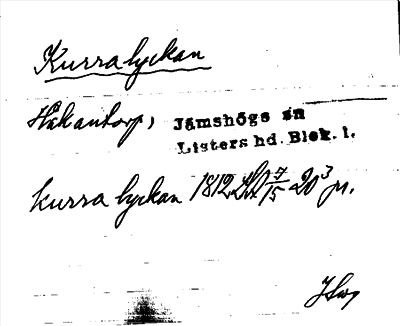 Kurralyckan
Håkantorp, Jämshögs sn
Listers hd. Blek. l.
kurra lyckan 1812 7/15 20³